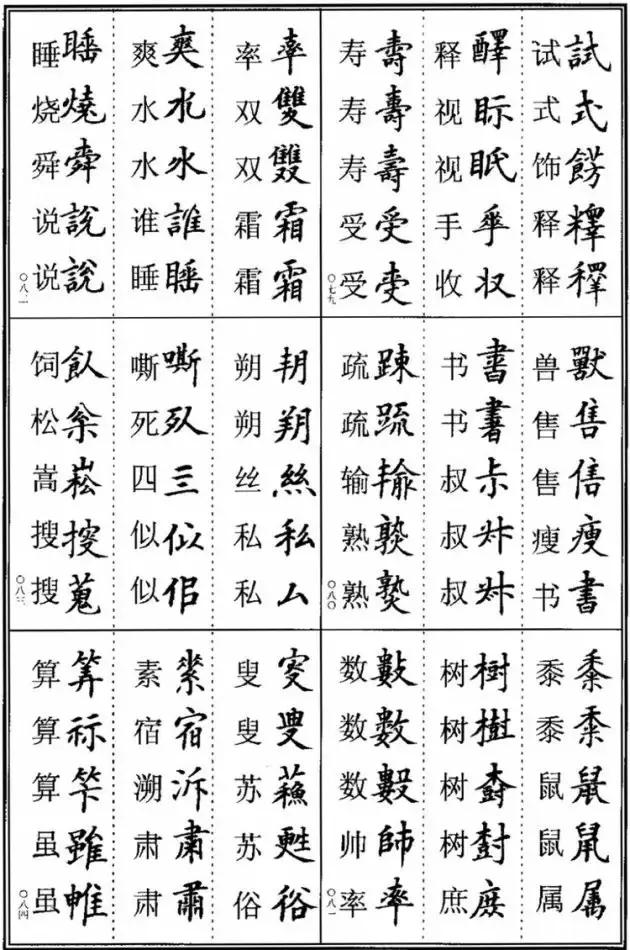 试試 式式 饰餝 释釋 释釋
释醳 视眎 视眂 手𠂿 收収
寿壽 寿壽 寿壽 受受 受
〇七九
兽獸 售售 售 瘦瘦 书書
书書 书書 叔尗 叔 叔
疏踈 疏疏 输输 熟 熟
〇八〇
黍黍 黍 鼠鼠 鼠 属属
树樹 树樹 树 树尌 庶庻
数數 数數 数 帅帥 率率
〇八一
率率 双雙 双雙 霜霜 霜霜
爽爽 水水 水水 谁誰 睡睡
睡睡 烧燒 舜舜 说說 说說
〇八二
朔 朔朔 丝絲 私私 私厶
嘶嘶 死 四亖 似似 似佀
饲飤 松枀 嵩崧 搜搜 搜蒐
〇八三
叟叜 叟叟 苏蘓 苏甦 俗俗
素素 宿宿 溯泝 肃肅 肃肅
算筭 算祘 算 虽雖 虽
〇八四